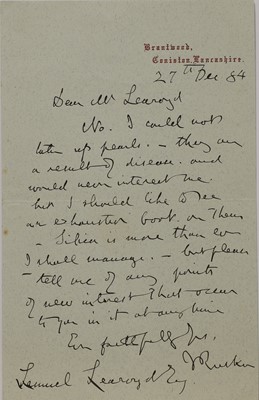 Brantwood,
Coniston, Lancashire.
27th Dec 84
Dear Mr Learoyd
No. I could not
take up pearls. – they are
a result of disease. and
would never interest me.
but I should like to see
an exhaustive book on them
– Silica is more than ever
I shall manage. – but please
– tell me of any points
of new interest that occur
to you in it at any time
Ever faithfully Yrs.
J Ruskin
Samuel Learoyd Esq.